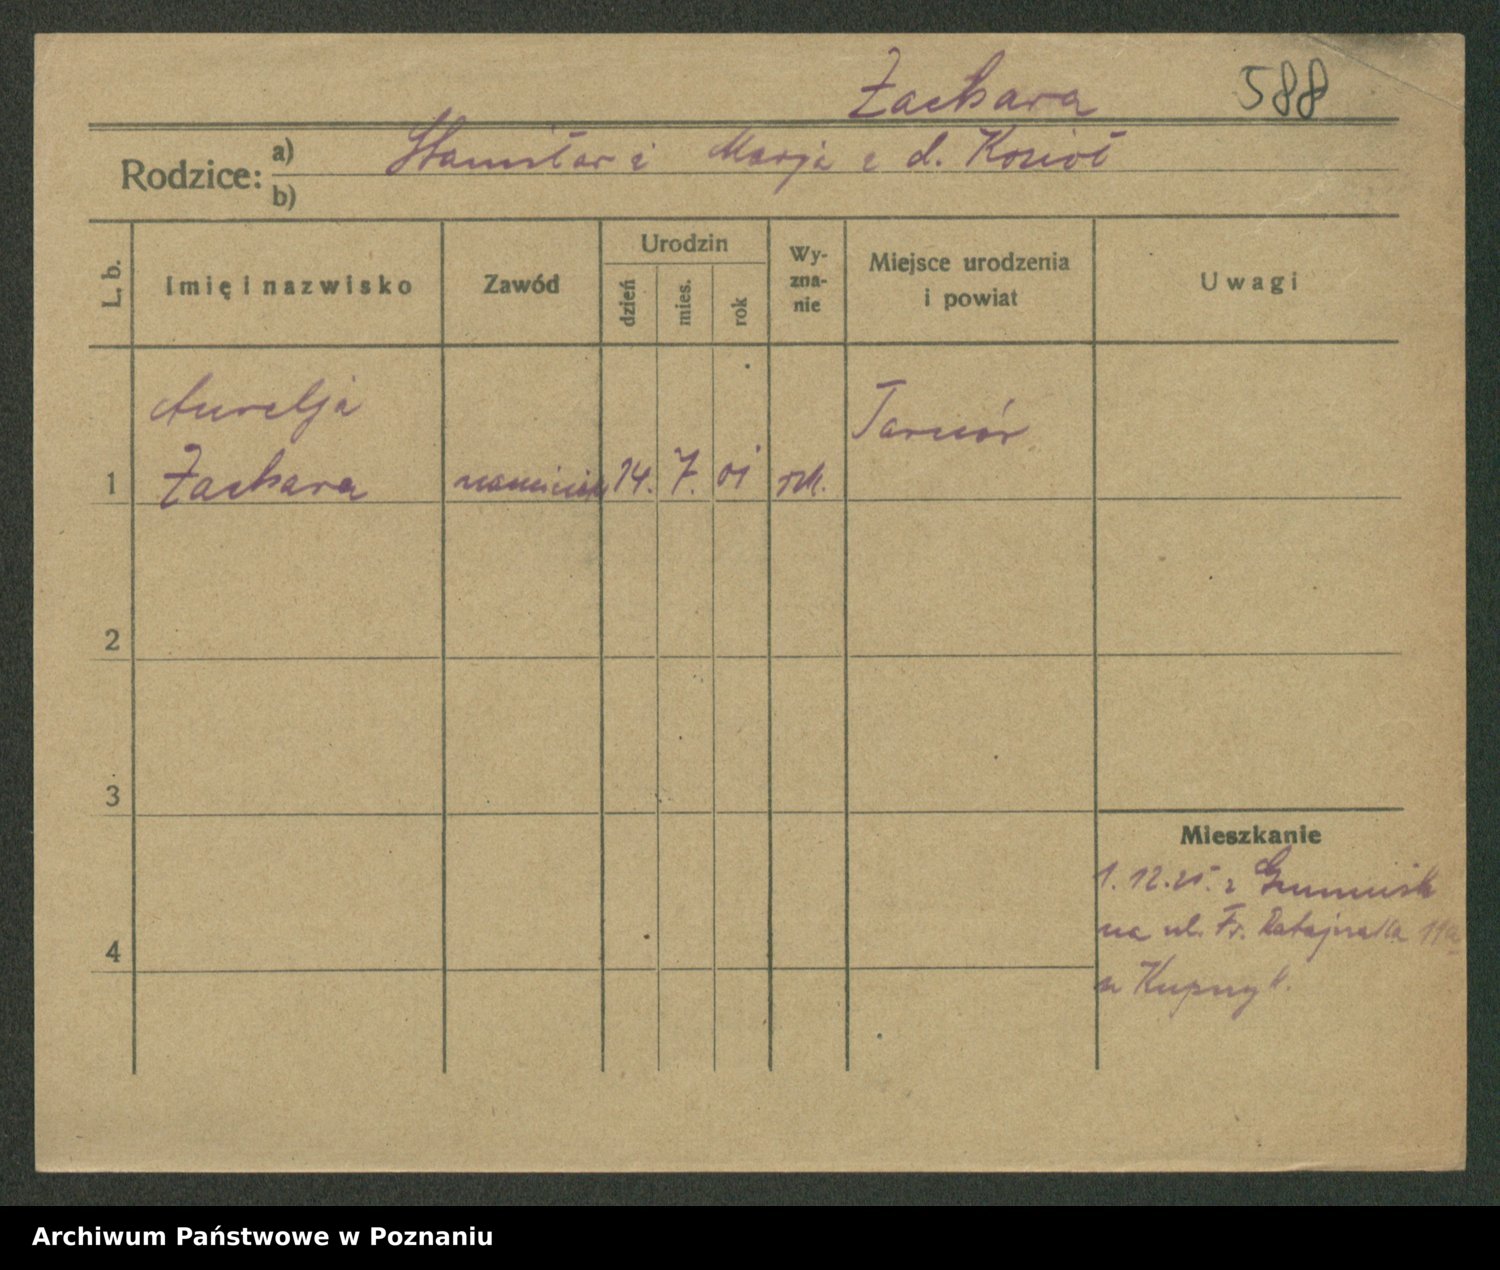 Zachara 588
Rodzice: a) Stanisław i Marja z d. Kozioł
b)
L. b. Imię i nazwisko Zawód Urodzin dzień mies. rok Wy-zna-nie Miejsce urodzenia i powiat Uwagi
Aurelja Tarnów
1 Zachara 14. 7. 01 rzk.
2
3
Mieszkanie
1. 12. 25. z
na ul. Fr. Ratajczaka 11a
4
u
Archiwum Państwowe w Poznaniu